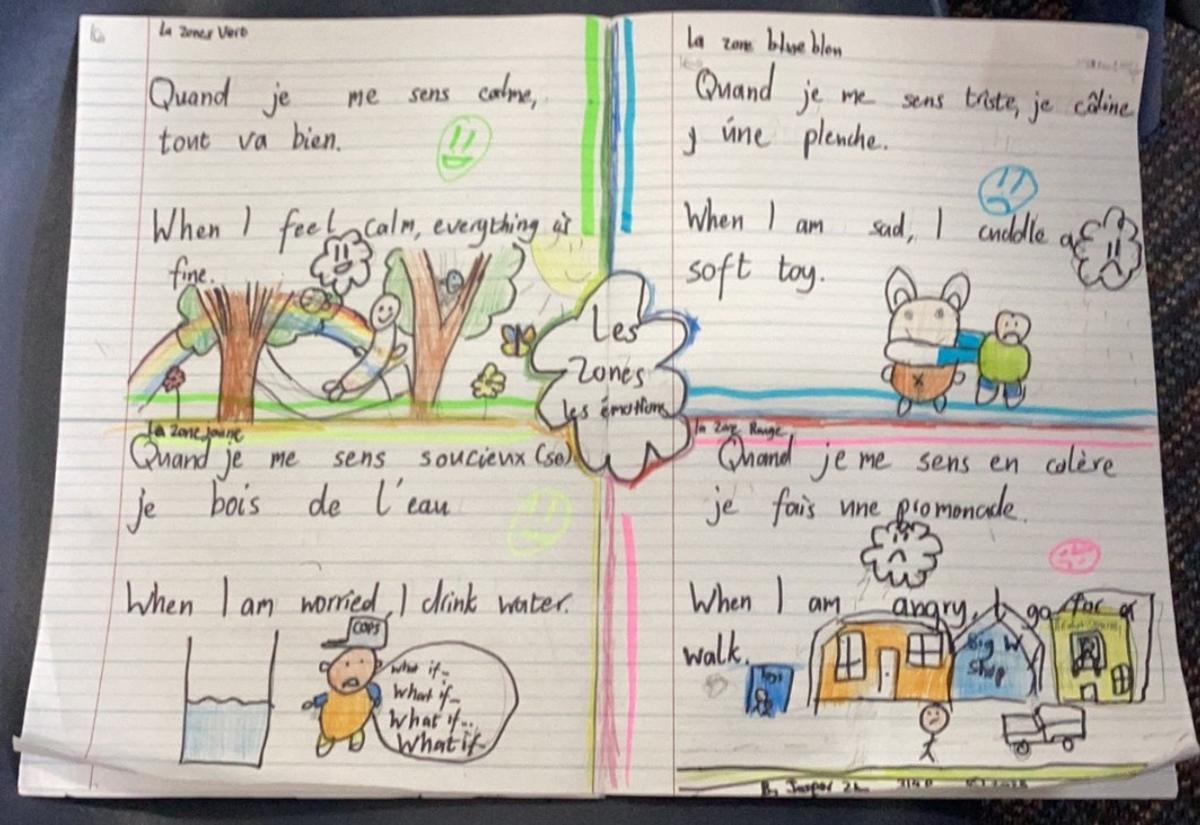 La Zones Verb
Quand je me sens calme,
tout va bien.
When I feel calm, everything is
fine.
La zone blue bleu
Quand je me sens triste, je câline
úne plenche.
When I am sad, I cuddle a
soft toy.
Les
Zones
les émotions
La Zone jaune
Quand je me sens soucieux (se)
je bois de l'eau
When I am worried, I drink water.
COPS
What if...
What if...
What if...
What if...
la Zone Rouge
Quand je me sens en colère
je fais une promonade.
When I am angry, I go for a
walk.
Big W
Shop
By Jasper 2L